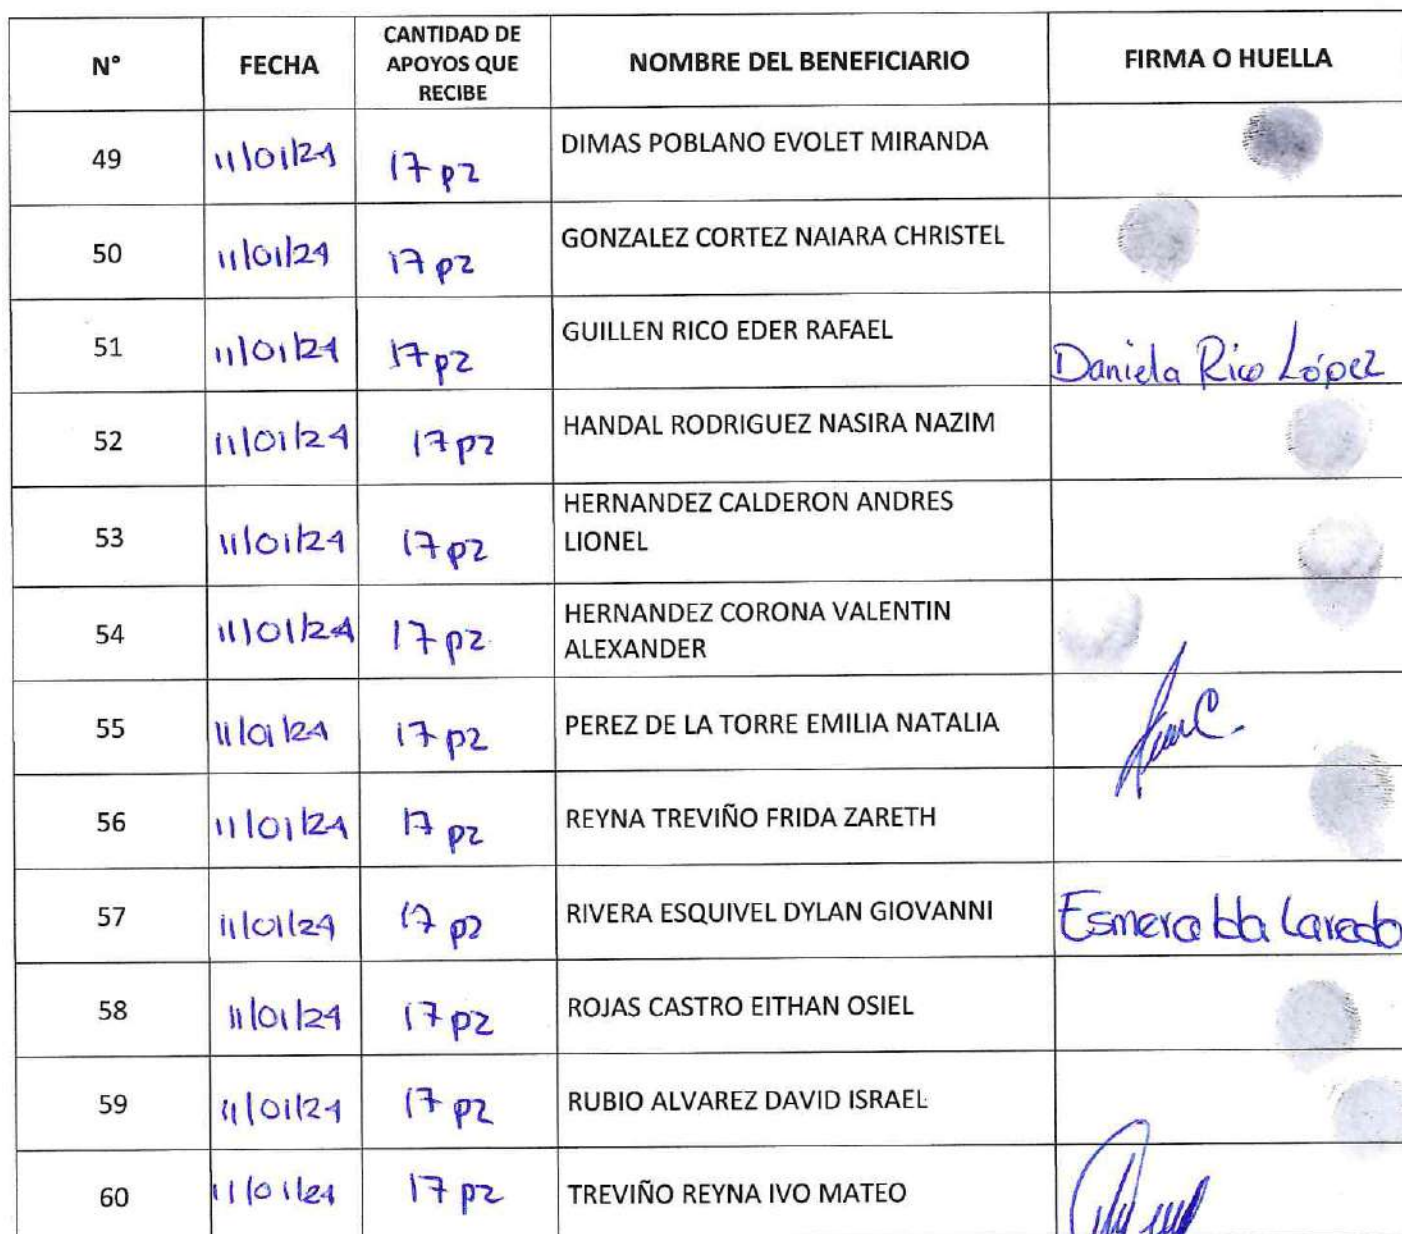 N° FECHA CANTIDAD DE APOYOS QUE RECIBE NOMBRE DEL BENEFICIARIO FIRMA O HUELLA
49 11/01/24 17 pz DIMAS POBLANO EVOLET MIRANDA
50 11/01/24 17 pz GONZALEZ CORTEZ NAIARA CHRISTEL
51 11/01/24 17 pz GUILLEN RICO EDER RAFAEL Daniela Rico López
52 11/01/24 17 pz HANDAL RODRIGUEZ NASIRA NAZIM
53 11/01/24 17 pz HERNANDEZ CALDERON ANDRES
LIONEL
54 11/01/24 17 pz HERNANDEZ CORONA VALENTIN
ALEXANDER
55 11/01/24 17 pz PEREZ DE LA TORRE EMILIA NATALIA
56 11/01/24 17 pz REYNA TREVIÑO FRIDA ZARETH
57 11/01/24 17 pz RIVERA ESQUIVEL DYLAN GIOVANNI Esmeralda Laredo
58 11/01/24 17 pz ROJAS CASTRO EITHAN OSIEL
59 11/01/24 17 pz RUBIO ALVAREZ DAVID ISRAEL
60 11/01/24 17 pz TREVIÑO REYNA IVO MATEO